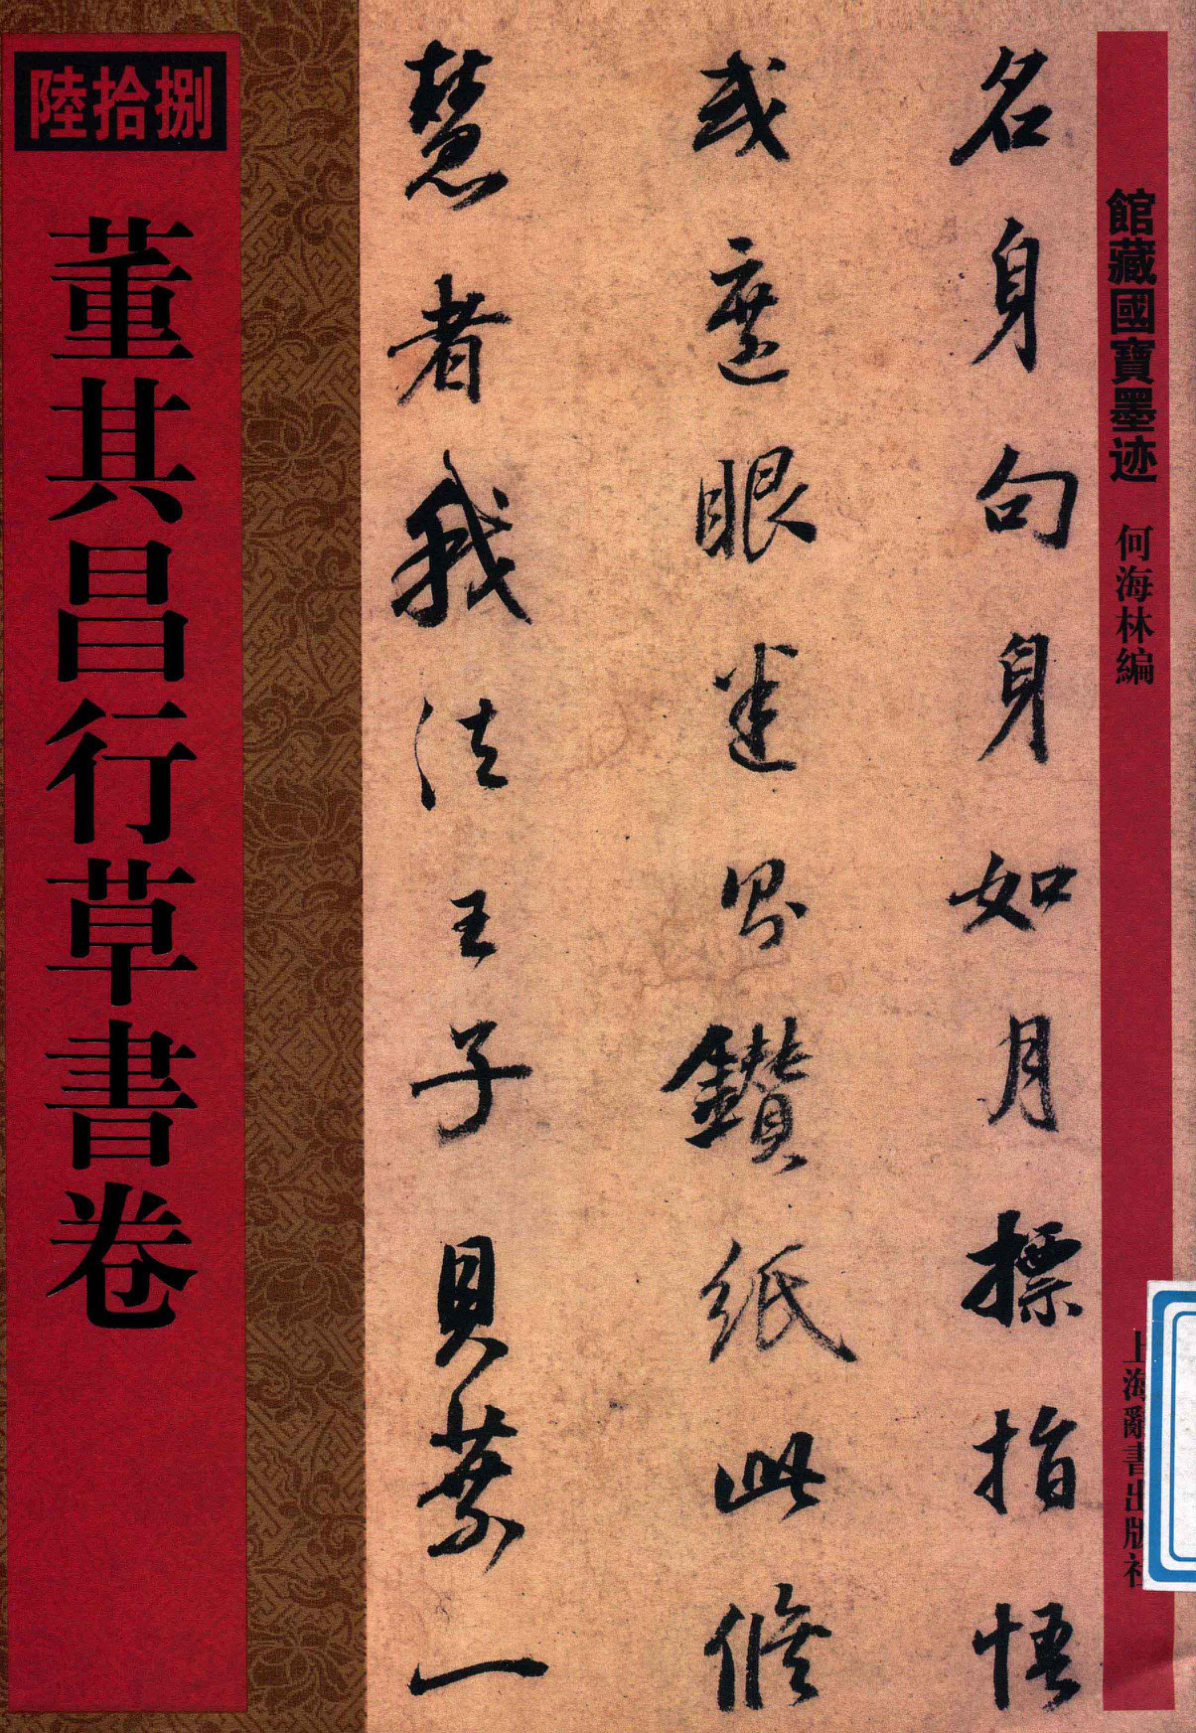 館藏國寶墨迹 何海林編 上海辭書出版社
名身句身如月標指悟
或遮眼迷則鑽紙此修
慧者我法王子貝葉一
陸拾捌
董其昌行草書卷